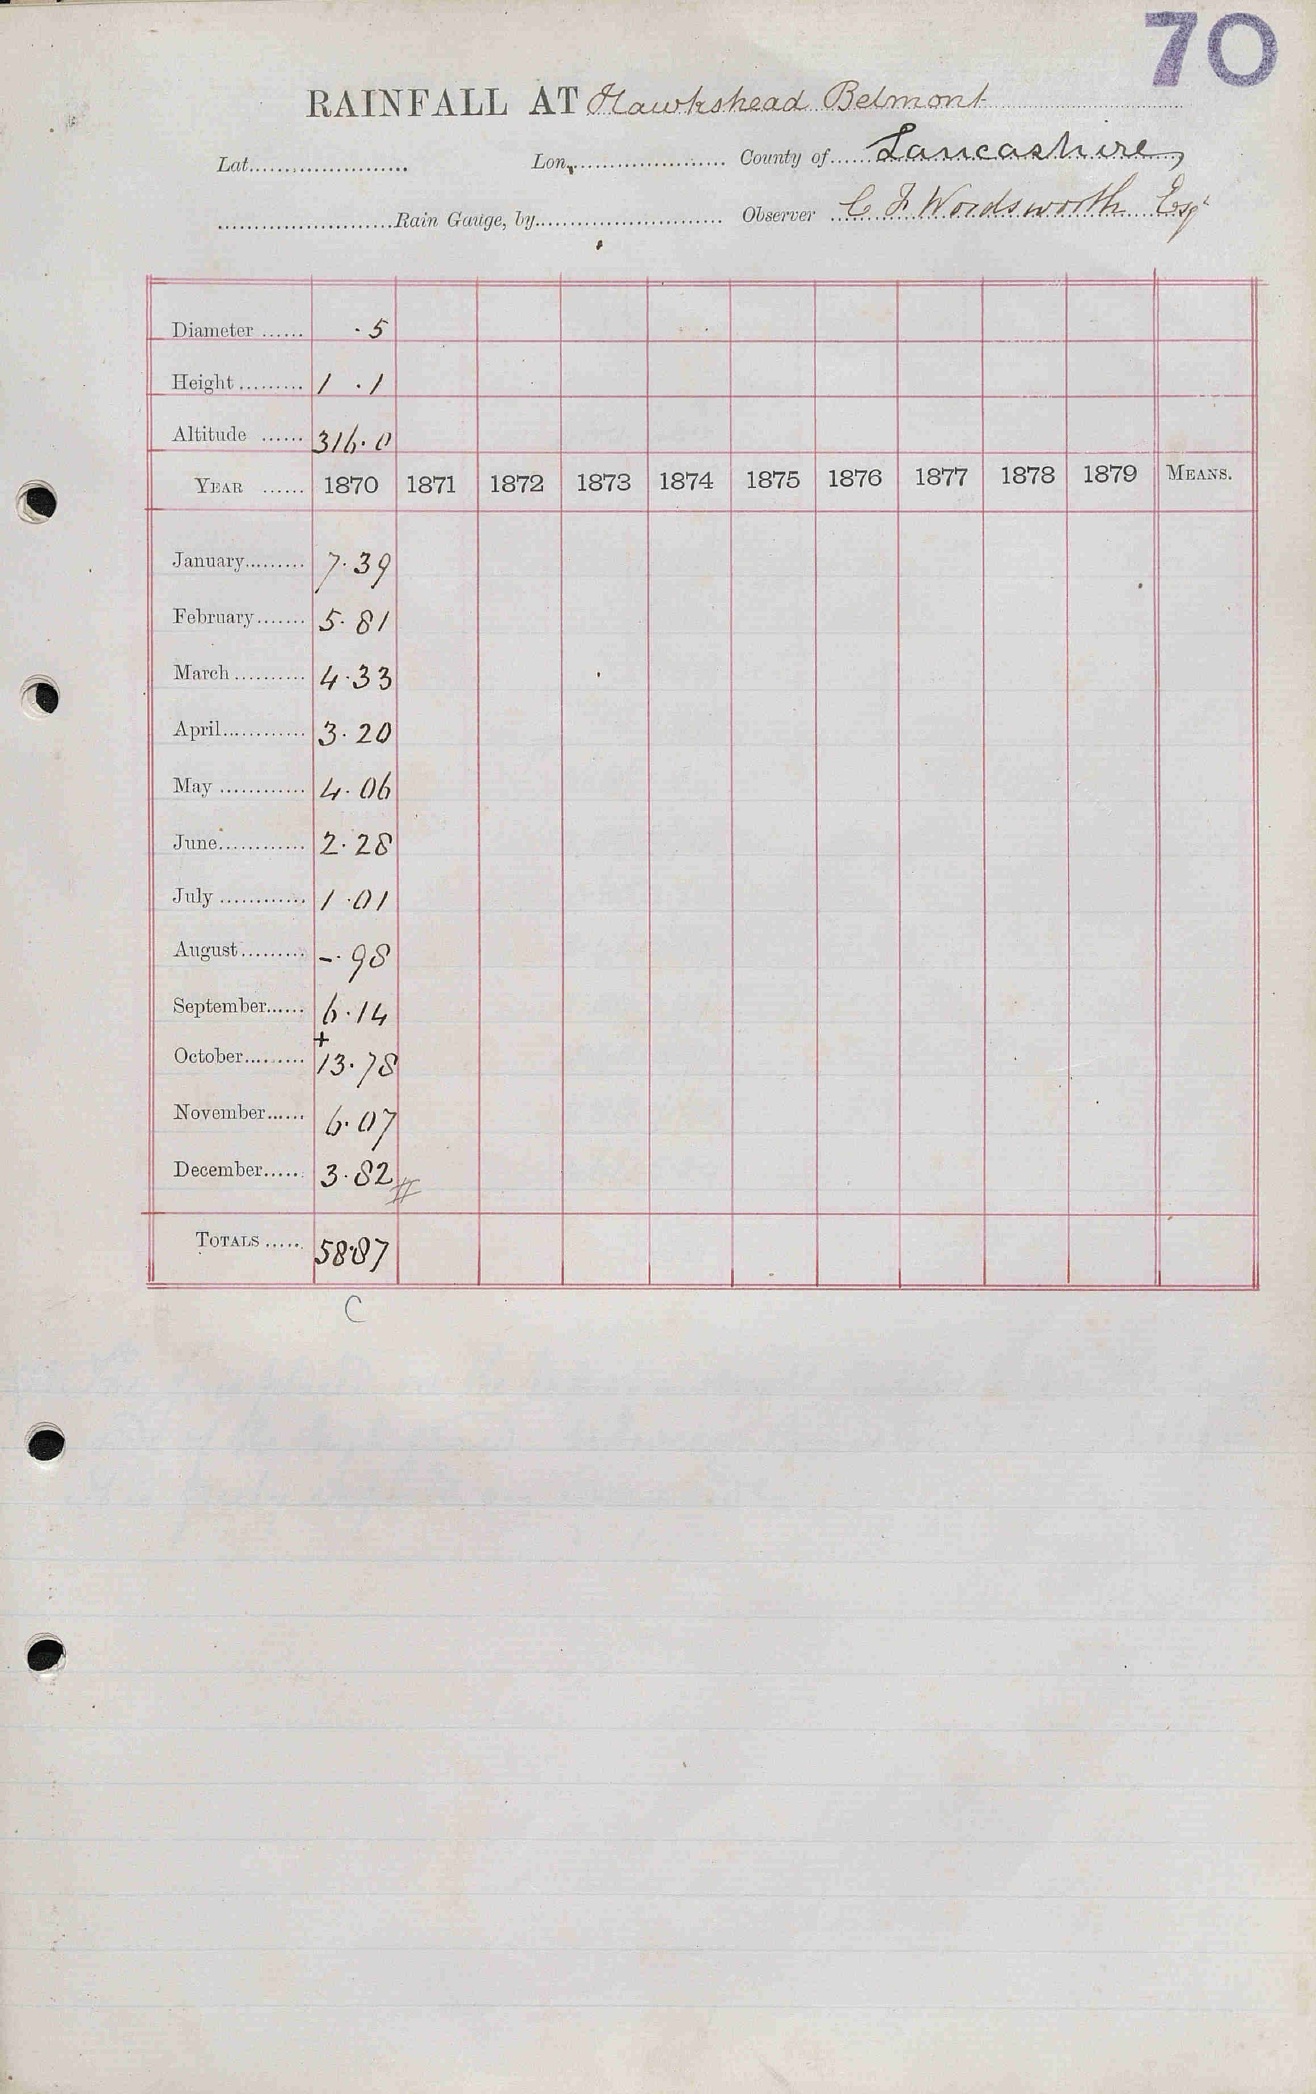 70
RAINFALL AT Hawkshead Belmont
Lat...................... Lon...................... County of...... Lancashire
......................Rain Gauge, by...................... Observer C F Wordsworth Esqr
Diameter ...... .5
Height ......... 1 .1
Altitude ...... 316.0
YEAR ...... 1870 1871 1872 1873 1874 1875 1876 1877 1878 1879 MEANS.
January......... 7.39
February....... 5.81
March.......... 4.33
April............ 3.20
May ............ 4.06
June............ 2.28
July ............ 1.01
August......... -.98
September...... 6.14
+
October......... 13.78
November...... 6.07
December..... 3.82 #
TOTALS ..... 58.87
C